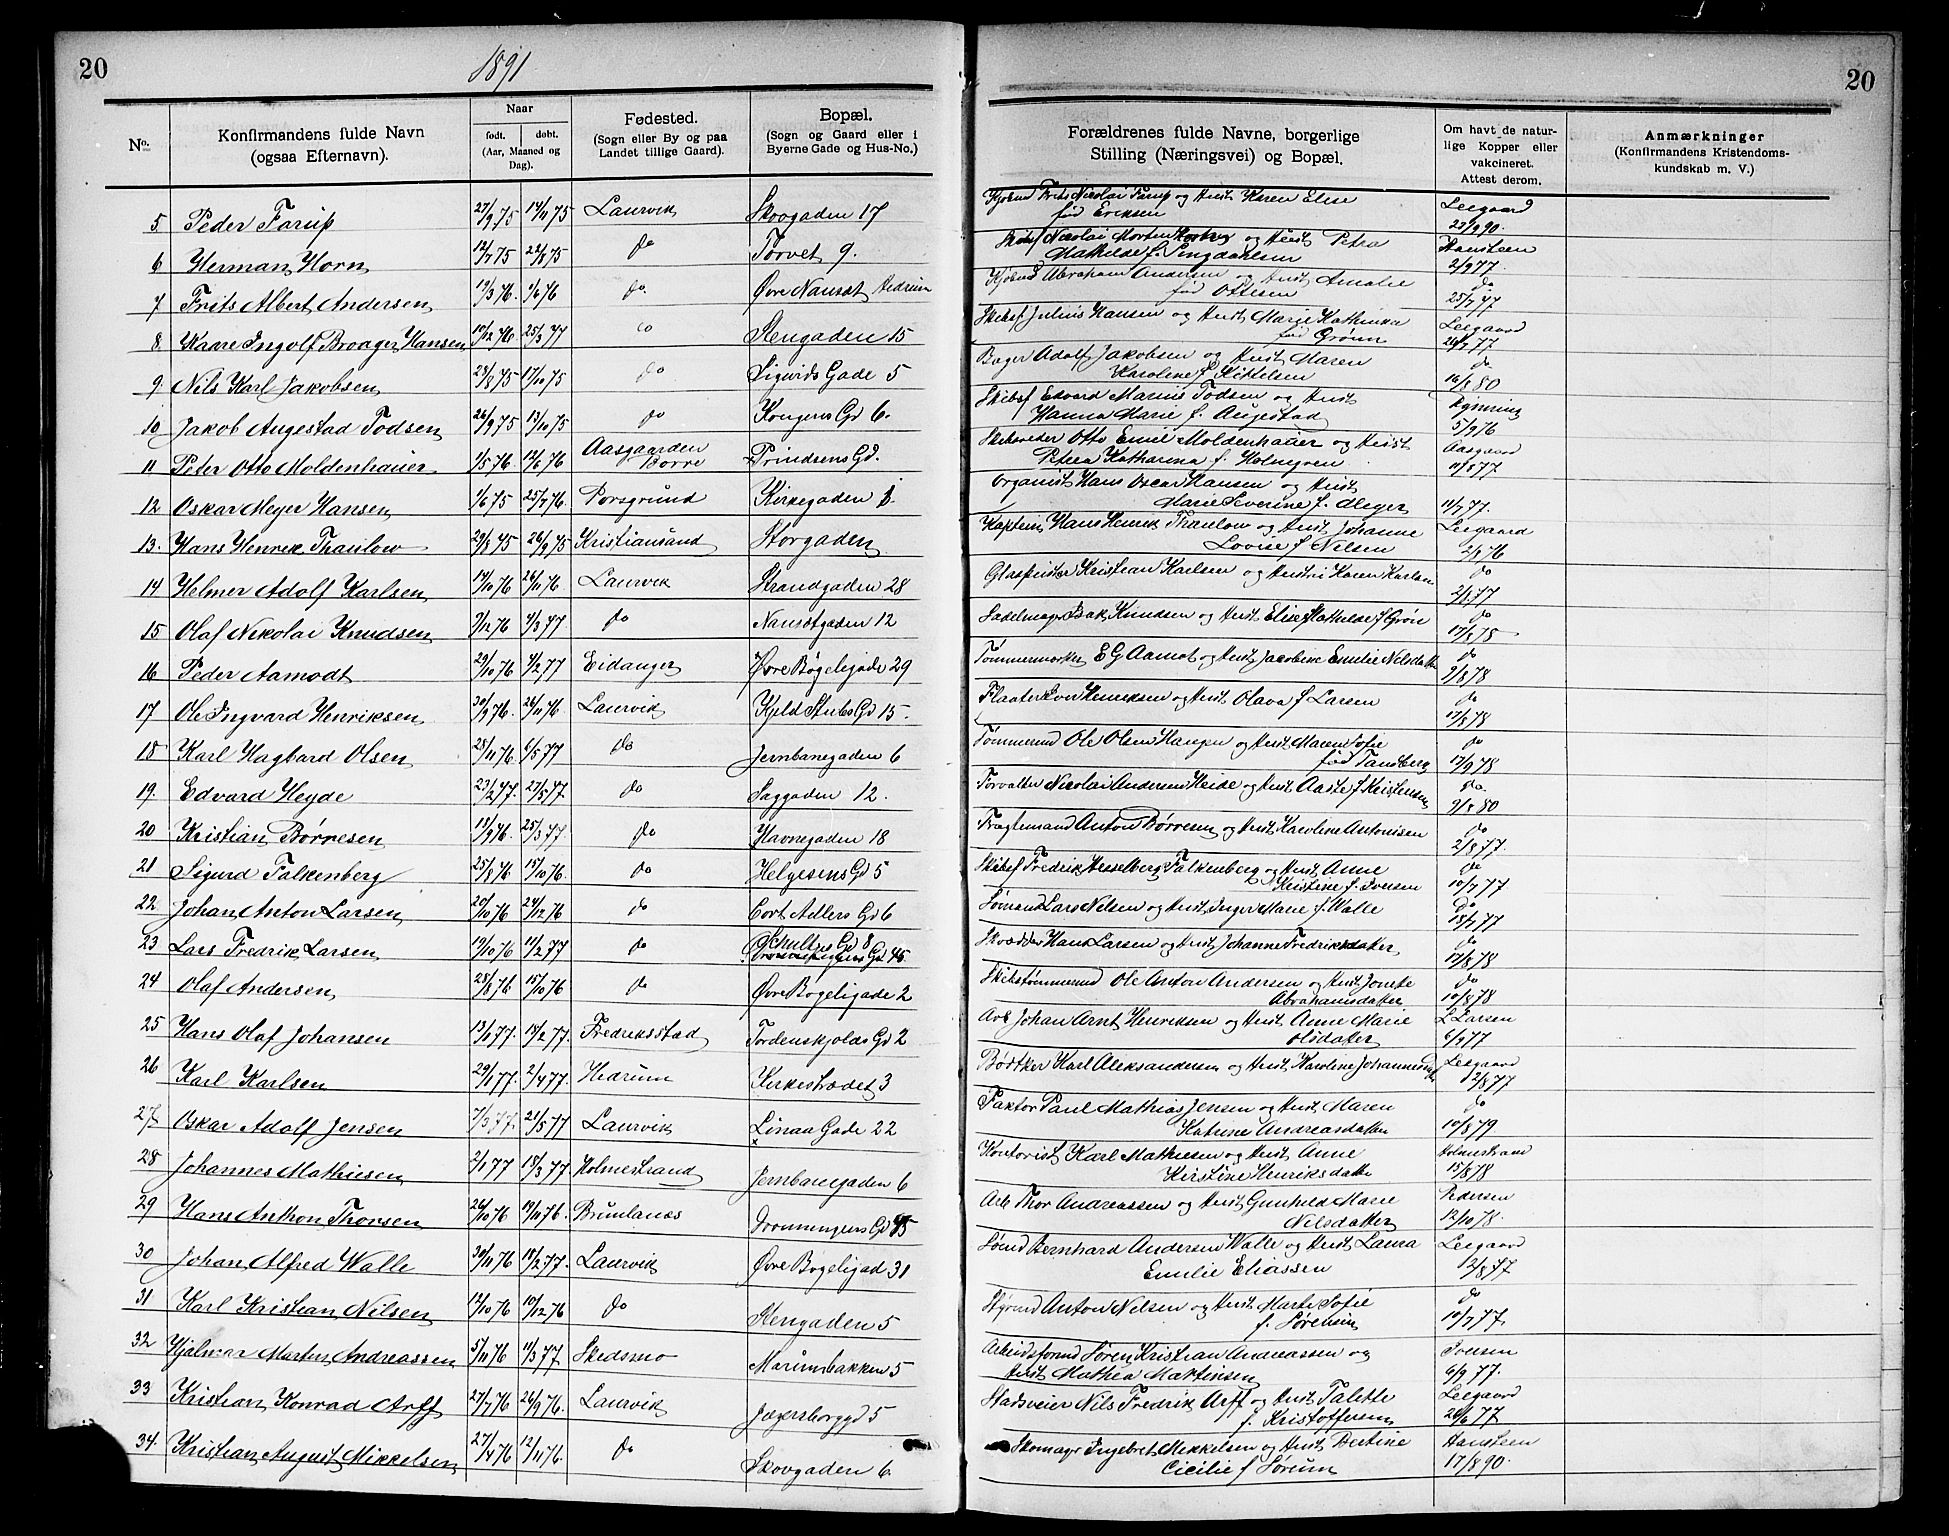 20
1891
20
No.
Konfirmandens fulde Navn
(ogsaa Efternavn).
Naar
født.
døbt.
(Aar, Maaned og
Dag).
Fødested.
(Sogn eller By og paa
Landet tillige Gaard).
Bopæl.
(Sogn og Gaard eller i
Byerne Gade og Hus-No.)
Forældrenes fulde Navne, borgerlige
Stilling (Næringsvei) og Bopæl.
Om havt de natur-
lige Kopper eller
vakcineret.
Attest derom.
Anmærkninger
(Konfirmandens Kristendoms-
kundskab m. V.)
5 Peder Farup 27/9 75 14/11 75 Laurvik Skovgaden 17
6 Herman Horn 12/7 75 22/8 75 do Torvet 9.
7 Frits Albert Andersen 19/3 76. 1/6 76 do. Øvre Nansæt Hedrum
8 Kaare Ingolf Broager Hansen 10/12 76 25/3 77 do Stengaden 15
9 Nils Karl Jakobsen 28/8 75 17/10 75 do Sigurds Gade 5
10 Jakob Augestad Todsen 26/9 75 13/10 75 do Kongens Gd 6.
11 Peter Otto Moldenhauer 1/5 76. 12/6 76 Aasgaarden Borre Prindsens Gd.
12 Oskar Meyer Hansen 1/6 75 25/7 76. Porsgrund Kirkegaden 1
13. Hans Henrik Thaulow 29/8 75 26/9 75 Kristiansand Storgaden
14 Helmer Adolf Karlsen 14/10 76 26/11 76. Laurvik Strandgaden 28
15 Olaf Nikolai Knudsen 2/12 76 4/3 77 do Nansetgaden 12
16 Peder Aamodt 29/10 76 4/2 77 Eidanger Øvre Bøgeligade 29
17 Ole Ingvard Henriksen 30/9 76. 26/11 76 Laurvik Kjeld Stubs Gd 15.
18 Karl Hagbard Olsen 28/11 76 6/5 77 Do Jernbanegaden 6
19. Edvard Heyde 23/2 77. 27/5 77. do Saggaden 12.
20 Kristian Børresen 18/9 76. 25/3 77 do Havnegaden 18
21 Sigurd Falkenberg 25/8 76 15/10 76. do Helgesens Gd 5
22 Johan Anton Larsen 20/10 76 24/12 76 do Cort Adlers Gd 6
23 Lars Fredrik Larsen 19/10 76 11/2 77 do Schultzes Gd 8
Dronningens Gd 45.
24 Olaf Andersen 28/8 76 15/10 76 do Øvre Bøgeligade 2
25 Hans Olaf Johansen 13/1 77. 18/2 77. Fredriksstad Tordenskjolds Gd 2
26 Karl Karlsen 29/1 77. 2/4 77. Hedrum Kirkestrædet 3
27 Oskar Adolf Jensen 7/3 77. 21/5 77 Laurvik Linaa Gade 22
28 Johannes Mathiesen 2/1 77 18/3 77 Holmestrand Jernbanegaden 6
29 Hans Anthon Thorsen 26/10 76 19/11 76. Brunlanes Dronningens Gd 45
30 Johan Alfred Walle 30/11 76 18/2 77. Laurvik Øvre Bøgeligad 31
31 Karl Kristian Nilsen 12/10 76 10/12 76 do Stengaden 5
32 Hjalmar Marten Andreassen 5/11 76 11/3 77 Skedsmo Marumbakken 5
33 Kristian Konrad Arff 27/7 76 26/9 76. Laurvik Jægersborggd 5
34. Kristian August Mikkelsen 27/4 76 12/11 76. do Skovgaden 6.
Kjøbmd Frits Nicolai Farup og Hust. Karen Elise Leegaard
fød Eriksen 23/9 90.
Skibsf Nicolai Morten og Hust Petra Hansteen
Mathilde f. Syngdahlsen 2/9 77.
Kjøbmd Abraham Andersen og Hust Amalie do
fød Ottesen 25/7 77
Skibsf Julius Hansen og Hust Marie Kathinka Leegaard
fød Grønn 26/7 77
Bager Adolf Jakobsen og Hust Maren do
Karoline f Kittelsen 16/8 80
Skibsf Edvard Marius Todsen og Hust
Hanna Marie f. Augestad 5/9 76
Skibsreder Otto Emil Moldenhauer og Hust Aasgaard
Petrea Katharina f. Holmgren 11/8 77
Organist Hans Oscar Hansen og Hust
Marie Severine f. Meyer 11/7 77.
Kaptein Hans Henrik Thaulow og Hust Johanne Leegaard
Lovise f Nilsen 2/8 76
Glaspuster Kristian Karlsen og Hustru Karen Karlsen do
2/8 77
Sadelmager Isak Knudsen og Hust Elise Mathilde f Grøn do
17/8 78
Tømmermerker E G Aamot og Hust Jacobine Emilie Nilsdatter do
9/8 78
Flaater Iver Henriksen og Hust Olava f Larsen do
17/8 78
Tømmermd Ole Olsen Haugen og Hust Maren Sofie do
fød Tandberg 17/9 78
Forvalter Nicolai Andersen Heide og Hust Aaste f Kristensen do.
9/8 80
Fragtemand Anton Børresen og Hust Karoline Antonisen do
2/8 77.
Skibsf Fredrik Hesselberg Falkenberg og Hust Anne do
Kristine f. Iversen 10/7 77
Sømand Lars Nilsen og Hust Inger Marie f. Walle Do
18/7 77
Skrædder Hans Larsen og Hust Johanne Fredriksdatter do
17/8 78
Skibstømmermd Ole Anton Andersen og Hust Jonette do
Abrahamsdatter 10/8 78
Arb Johan Arnt Henriksen og Hust Anne Marie L Larsen
Olsdatter 6/9 77
Bødtker Karl Aleksandersen og Hust Karoline Johannesdatter Leegaard
12/8 77
Faktor Paul Mathias Jensen og Hust Maren do
Katrine Andreasdatter 10/8 79
Kontorist Karl Mathiesen og Hust Anne Holmestrand
Kristine Henriksdatter 15/8 78
Arb Thor Andreassen og Hust Gunhild Marie Pedersen
Nilsdatter 12/10 78.
Sømd Bernhard Andersen Walle og Hust Laura Leegaard
Emilie Eliassen 12/8 77
Styrmd Anton Nilsen og Hust Marte Sofie do
f. Sørensen 10/7 77.
Arbeidsformd Søren Kristian Andreassen og Iversen
Hust Mathea Martinsen 6/9 77.
Stadsveier Nils Fredrik Arff og Hust Talette Leegaard
f. Kristoffersen 26/6 77
Skomager Ingebret Mikkelsen og Hust Bertine Hansteen
Cicilie f Sørum 17/8 90.